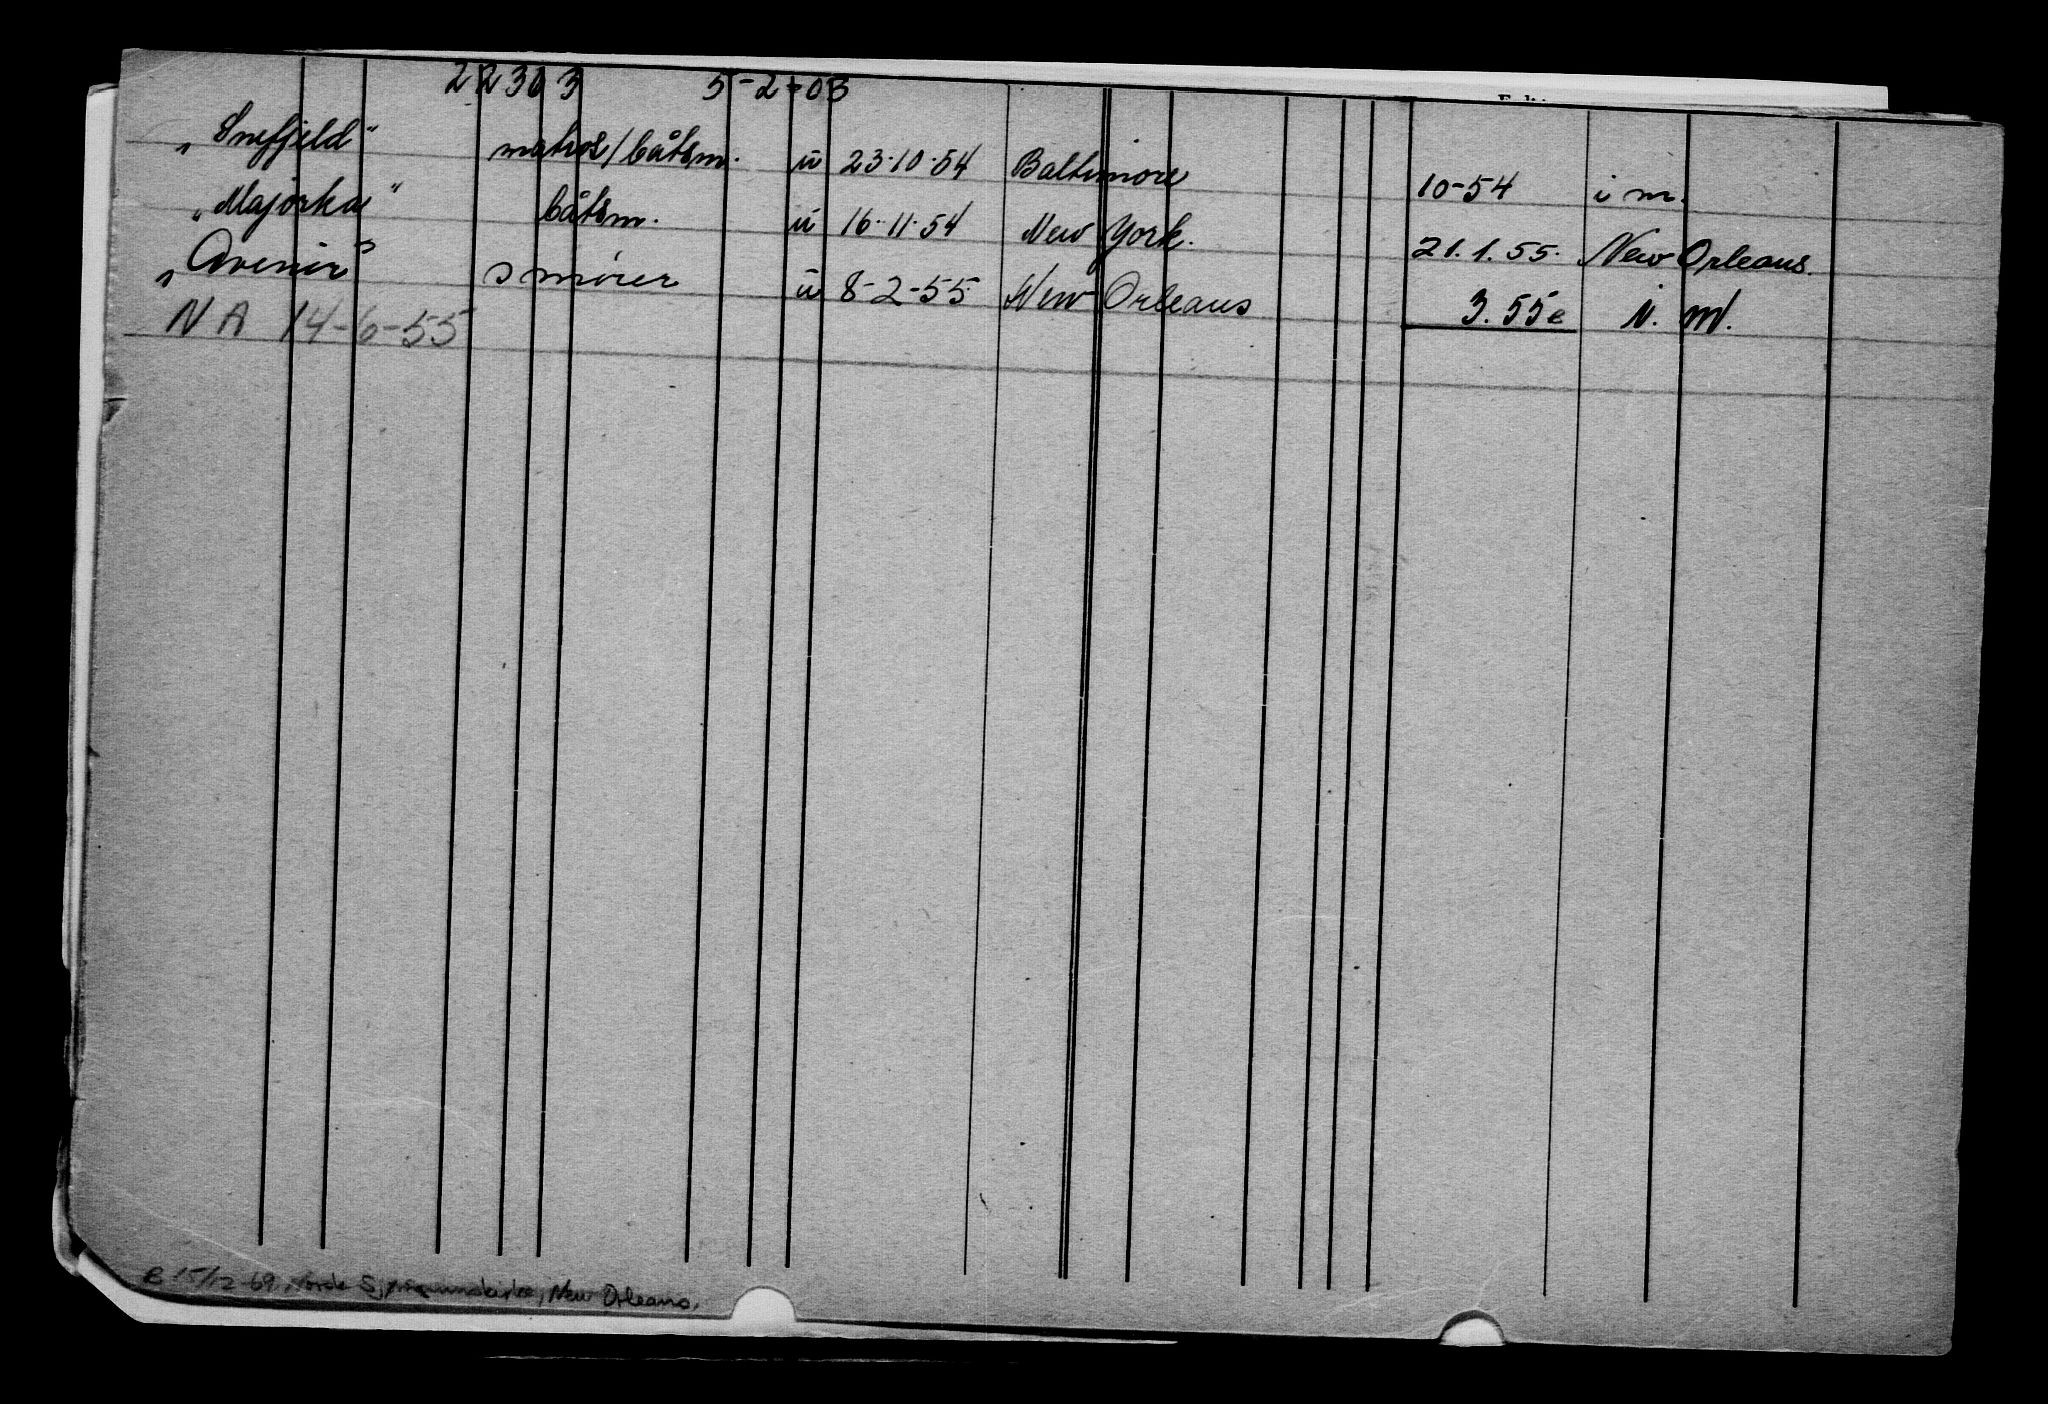 22303 5-2-03
„Snefjeld" matros/båtsm. u 23.10.54 Baltimore 10-54 i m.
„Majorka" båtsm. u 16.11.54 New York. 21.1.55. New Orleans.
„Avenir" smører u 8-2-55 New Orleans 3.55 e i. m.
NA 14-6-55
B 15/12-69, Norske Sjømannskirke, New Orleans.